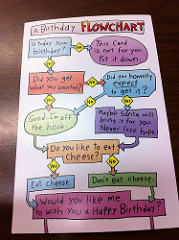 A Birthday FLOWCHART
Is today your birthday?
No
This Card is not for you. Put it down.
Yes
Did you get what you wanted?
No
Did you honestly expect to get it?
Yes
No
Yes
Good. I'm off the hook.
Maybe Santa will bring it for you. Never lose hope.
Do you like to eat cheese?
Yes
No
Eat cheese.
Don't eat cheese.
Would you like me to wish you a Happy Birthday?